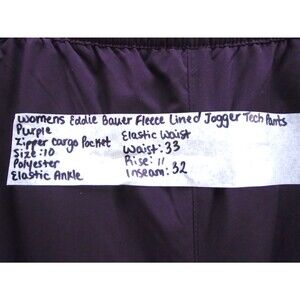 Womens Eddie Bauer Fleece Lined Jogger Tech Pants
Purple
Zipper Cargo Pocket
Size: 10
Polyester
Elastic Ankle
Elastic Waist
Waist: 33
Rise: 11
Inseam: 32